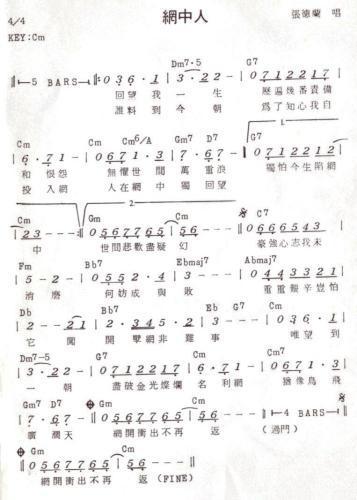 4/4
網中人
張德蘭 唱
KEY:Cm
Dm7-5 G7
5 BARS 036·1 3·22- 0712217
回望我一生 歷遍幾番責備
誰料到今朝 為了知心我自
1.
Cm Cm Cm6/A Gm7 D7 G7
6·71- 0671·3 7·67- 0712212
和恨怨 無懼世間萬重浪 獨怕今生陷網
投入網 人在網中獨回望
2
Cm Gm Cm C7
23-- 0567765 56-- 0666543
中 世間悲歡盡疑幻 豪強心志我未
Fm Bb7 Ebmaj7
5-2- 0552·4 3--- 0443321
消磨 何妨成與敗 重重艱辛豈怕
Db Bb7 Eb Cm
2--21 2·3452 3--- 0361
它 闖開擘網非難事 唯望到
Dm7-5 G7 Cm Cm7
3·22- 0712217 6·71- 0671·3
一朝 盡破金光燦爛 名利網 猶像鳥飛
Gm7 D7 Gm Cm
7·67- 0567765 56-- 4 BARS
廣濶天 網開衝出不再 返 (過門)
Gm Cm
0567765 56--
網開衝出不再 返(FINE)